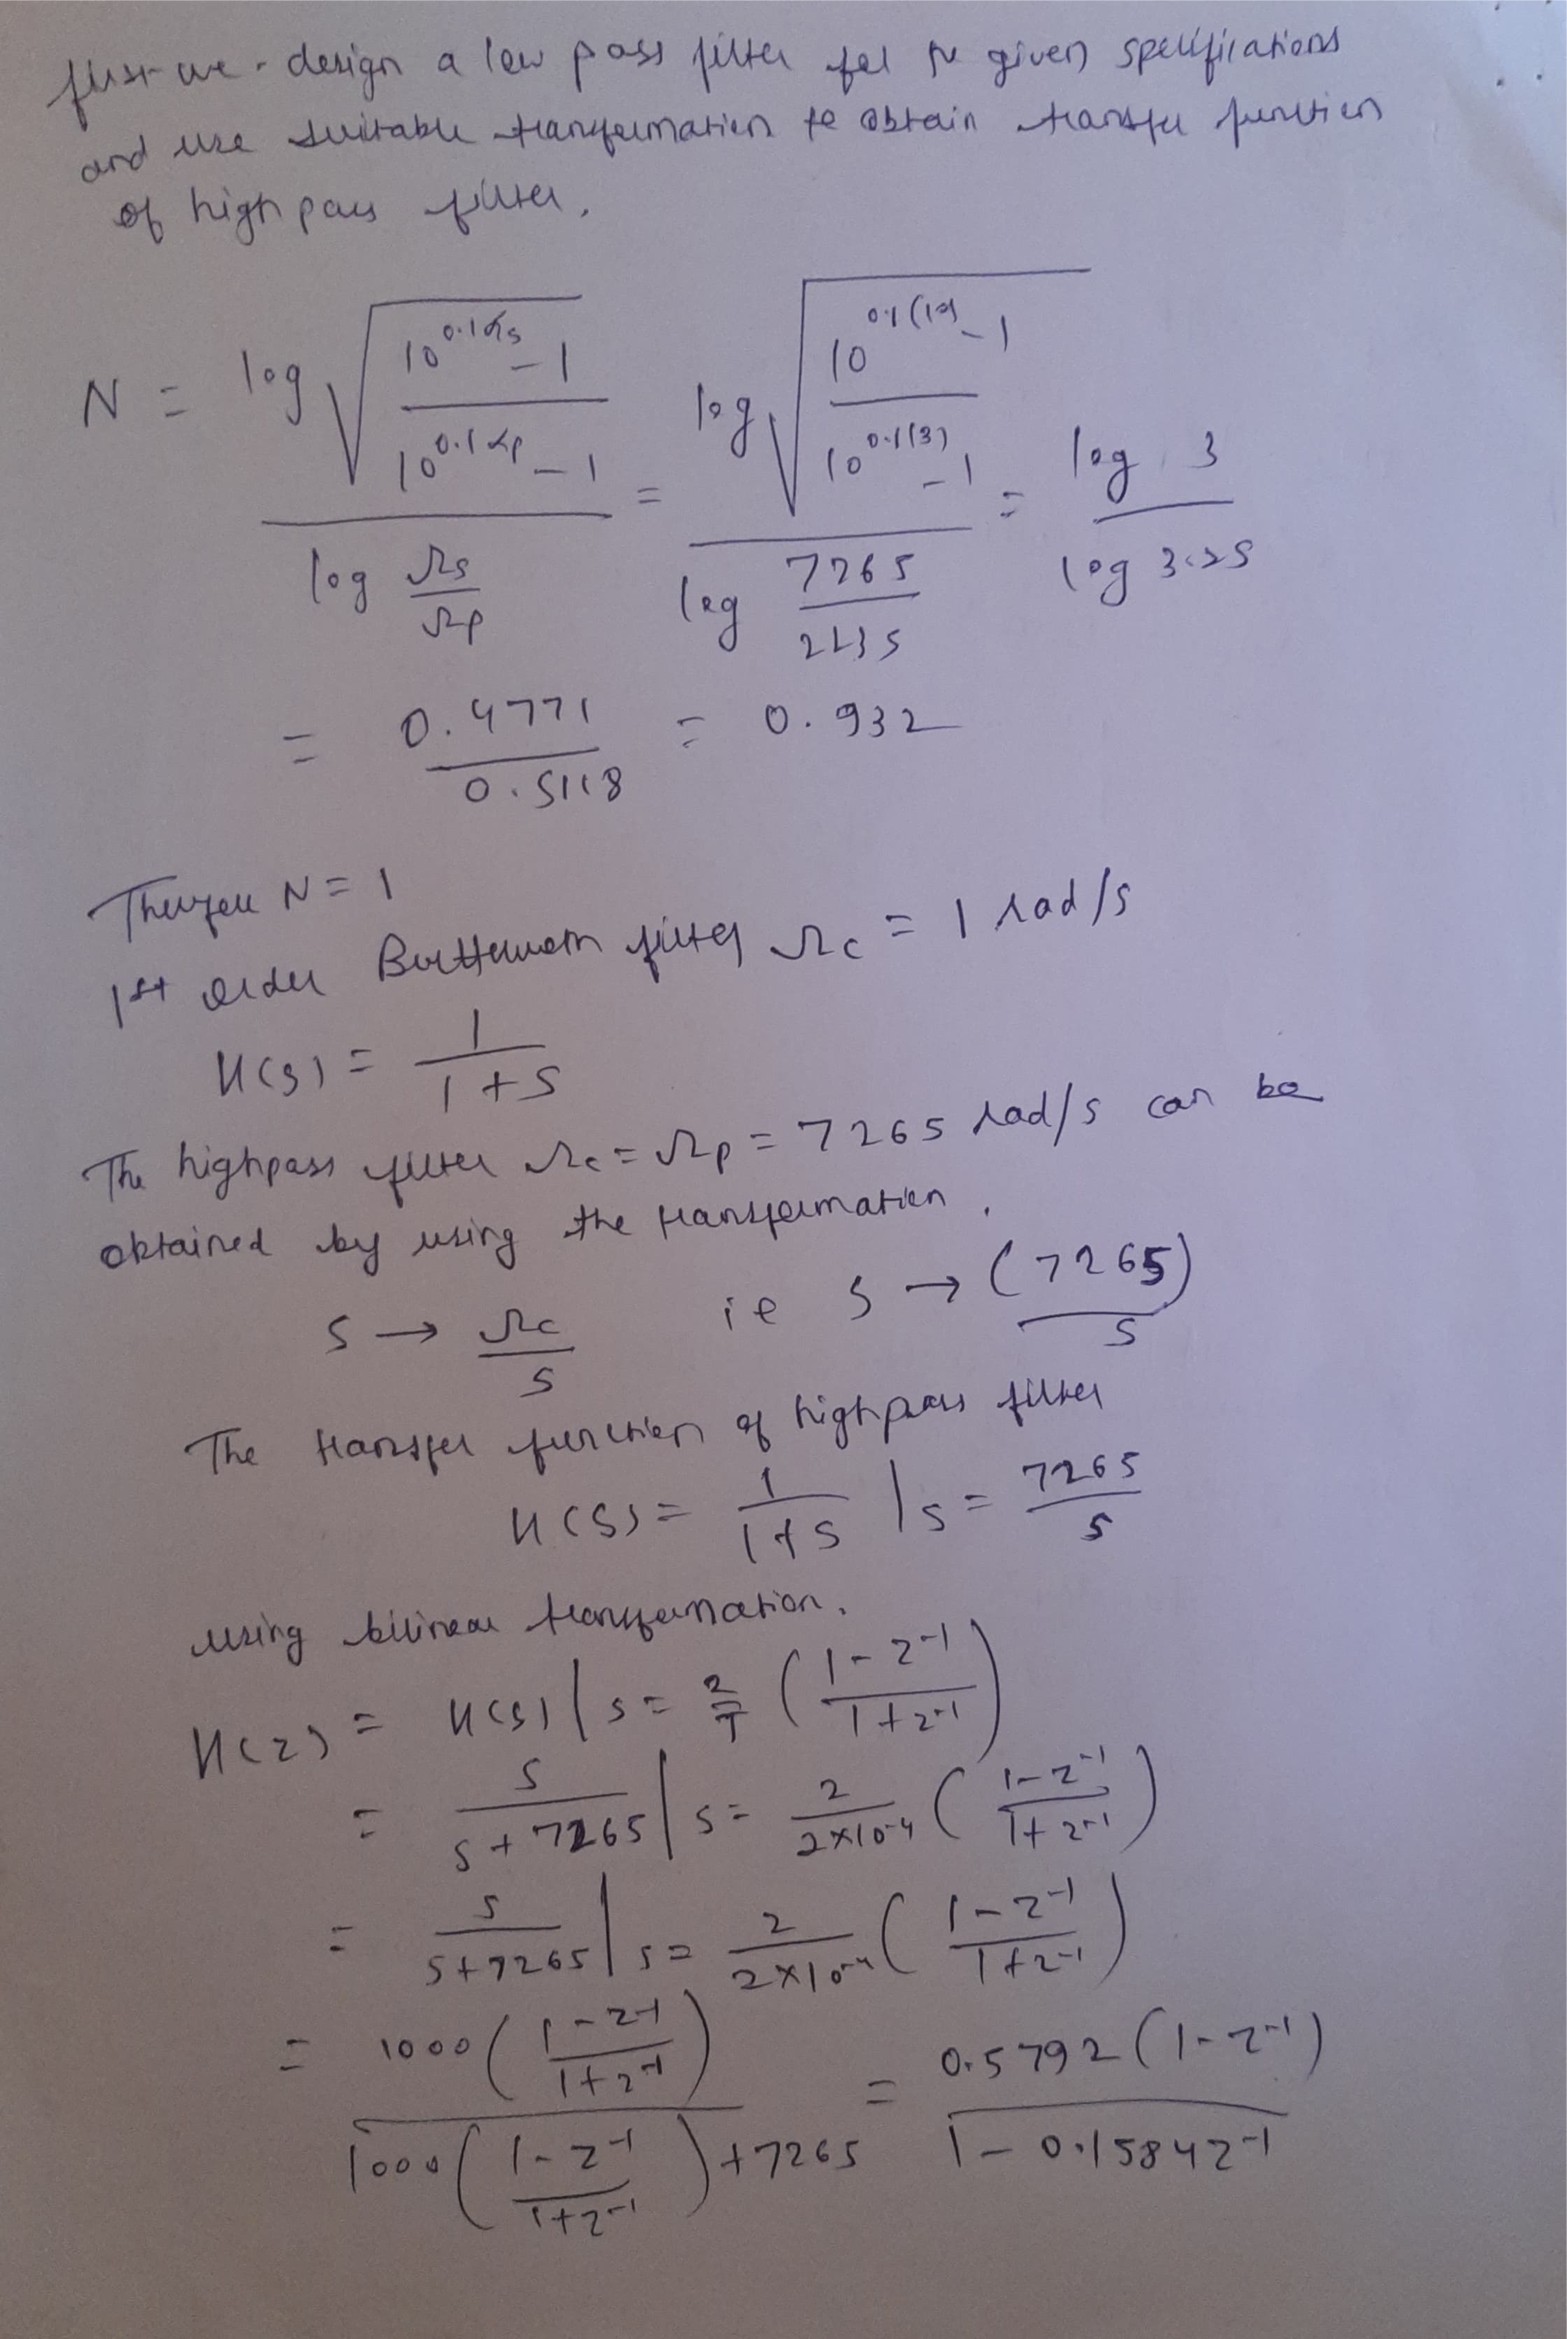 first we design a low pass filter for the given specifications
and use suitable transformation to obtain transfer function
of high pass filter.
N = log √((10^0.1αs - 1)/(10^0.1αp - 1)) / log (Ωs/Ωp) = log √((10^0.1(10) - 1)/(10^0.1(3) - 1)) / log (7265/2235) = log 3 / log 3.25
= 0.4771/0.5118 = 0.932
Therefore N = 1
1st order Butterworth filter Ωc = 1 rad/s
H(s) = 1/(1+s)
The highpass filter Ωc = Ωp = 7265 rad/s can be
obtained by using the transformation.
s → Ωc/s ie s → (7265)/s
The transfer function of highpass filter
H(s) = 1/(1+s) | s = 7265/s
using bilinear transformation.
H(z) = H(s) | s = 2/T ((1-z^-1)/(1+z^-1))
= s/(s+7265) | s = 2/(2×10^-4) ((1-z^-1)/(1+z^-1))
= s/(s+7265) | s = 2/(2×10^-4) ((1-z^-1)/(1+z^-1))
= 1000((1-z^-1)/(1+z^-1)) / (1000((1-z^-1)/(1+z^-1)) + 7265) = 0.5792(1-z^-1) / (1-0.1584z^-1)